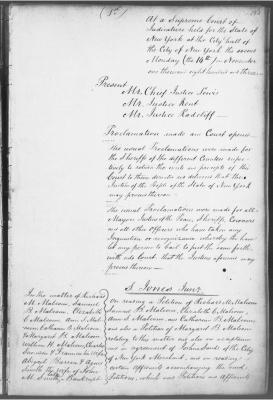 At a Supreme Court of
Judicature held for the State of
New York at the City Hall of
the City of New York the second
Monday (the 14th) in November
one thousand eight hundred and three
Present
Mr. Chief Justice Lewis
Mr. Justice Kent
Mr. Justice Radcliff
Proclamation made and Court opened
The usual Proclamations were made for
the Sheriffs of the different Counties
to return the writs and precepts of the
Court to them directed and delivered that the
Justices of the People of the State of New York
may proceed thereon
The usual Proclamations were made for all
Mayors Justices of the Peace, Sheriffs, Coroners
and all other Officers who have taken any
Inquisition or recognizance whereby they have
let any person to bail to put the same forth
with into Court that the Justices aforesaid may
proceed thereon
In the matter of Richard
M. Malcom, Samuel
B. Malcom, Elizabeth
Malcom, Ann S. Mal-
com Catharine Malcom
Margaret B. Malcom
William H. Malcom, Charles
and Frances his wife
Abigail
Smith the wife of John
M. Smith, a Bankrupt
S. Jones Junr
On reading a Petition of Richard M. Malcom
Samuel B. Malcom, Elizabeth Malcom,
Ann S. Malcom, and Catharine Malcom,
and also a Petition of Margaret B. Malcom
relating to this matter and also an acceptance
and an agreement of Jones of the City
of New York Merchant, and on reading
certain Affidavits accompanying the said
Petitions, which said Petitions and Affidavits